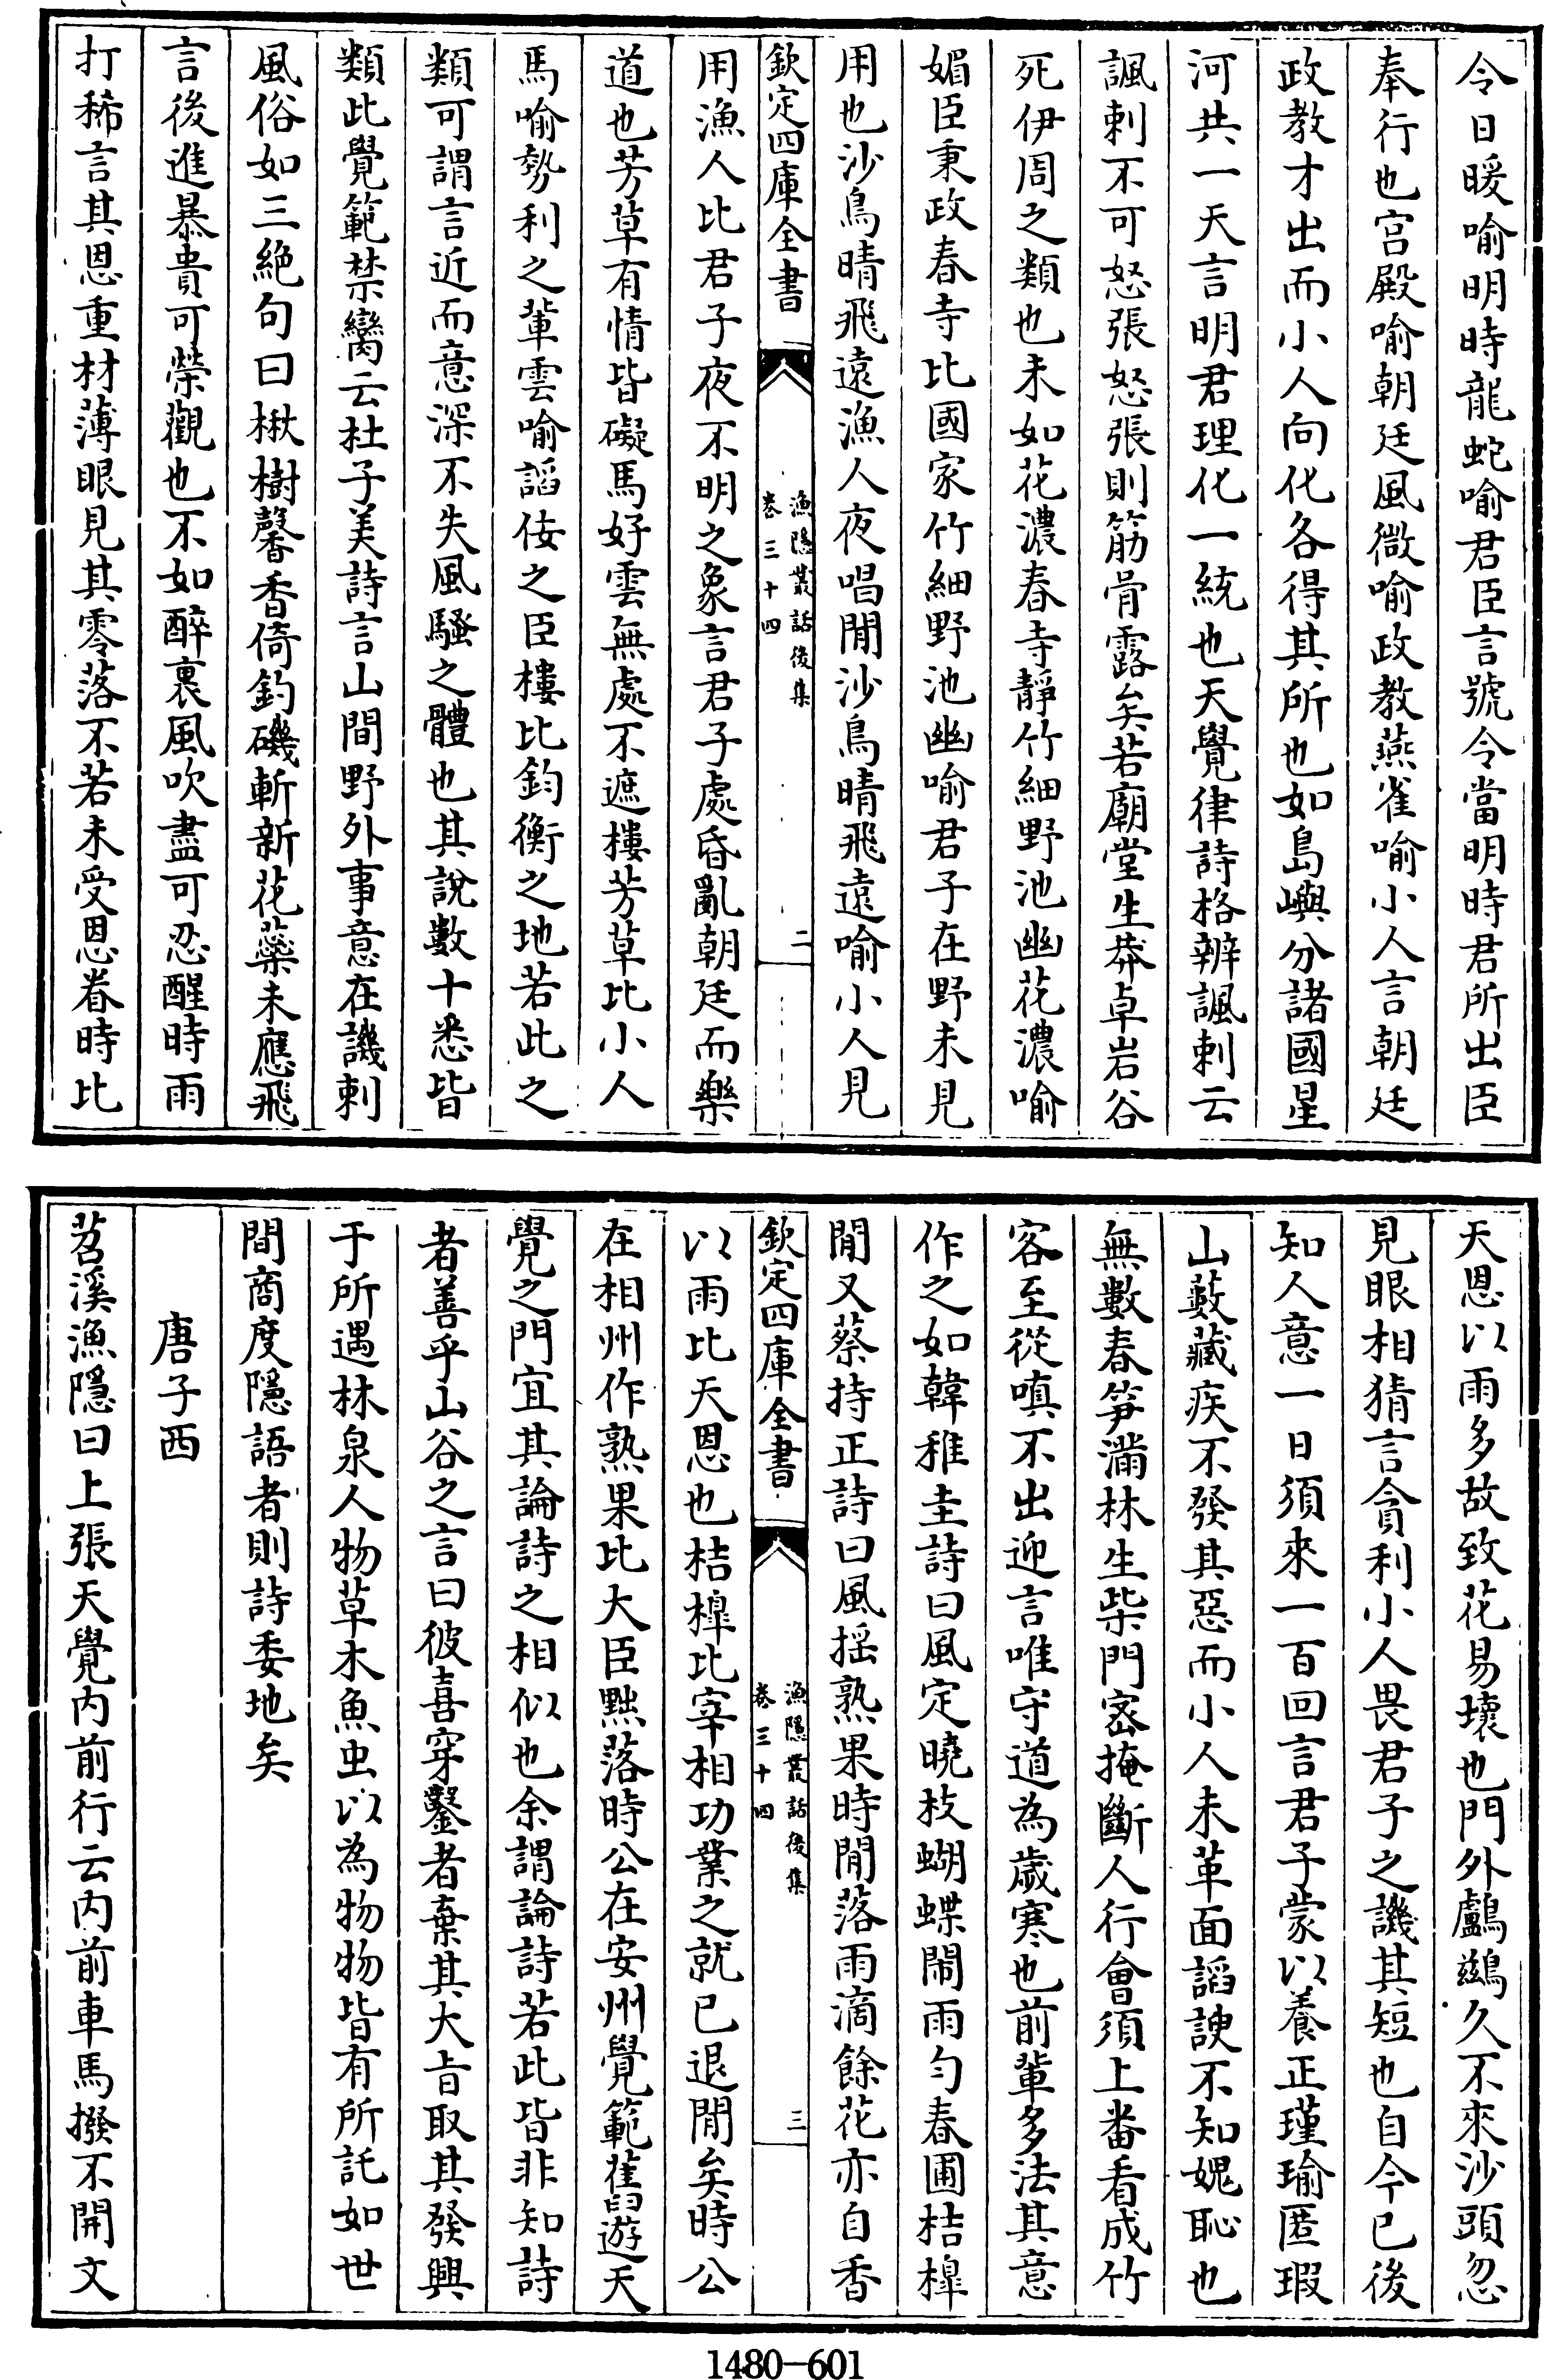 令日暖喻明時龍蛇喻君臣言號令當明時君所出臣
奉行也宮殿喻朝廷風微喻政教燕雀喻小人言朝廷
政教才出而小人向化各得其所也如島嶼分諸國星
河共一天言明君理化一統也天覺律詩格辨諷刺云
諷刺不可怒張怒張則筋骨露矣若廟堂生莽卓岩谷
死伊周之類也未如花濃春寺靜竹細野池幽花濃喻
媚臣秉政春寺比國家竹細野池幽喻君子在野未見
用也沙鳥晴飛遠漁人夜唱閒沙鳥晴飛遠喻小人見
欽定四庫全書
漁隱叢話後集
卷三十四
二
用漁人比君子夜不明之象言君子處昏亂朝廷而樂
道也芳草有情皆礙馬好雲無處不遮樓芳草比小人
馬喻勢利之輩雲喻謟佞之臣樓比鈞衡之地若此之
類可謂言近而意深不失風騷之體也其說數十悉皆
類此覺範禁臠云杜子美詩言山間野外事意在譏刺
風俗如三絶句曰楸樹馨香倚釣磯斬新花蘂未應飛
言後進暴貴可榮觀也不如醉裏風吹盡可忍醒時雨
打稀言其恩重材薄眼見其零落不若未受恩眷時比
天恩以雨多故致花易壞也門外鸕鷀久不來沙頭忽
見眼相猜言貪利小人畏君子之譏其短也自今已後
知人意一日須來一百回言君子蒙以養正瑾瑜匿瑕
山藪藏疾不發其惡而小人未革面謟諛不知媿恥也
無數春筍滿林生柴門宻掩斷人行會須上番看成竹
客至從嗔不出迎言唯守道為歲寒也前輩多法其意
作之如韓稚圭詩曰風定曉枝蝴蝶鬧雨勻春圃桔橰
閒又蔡持正詩曰風揺熟果時閒落雨滴餘花亦自香
欽定四庫全書
漁隱叢話後集
卷三十四
三
以雨比天恩也桔橰比宰相功業之就已退閒矣時公
在相州作熟果比大臣黜落時公在安州覺範舊遊天
覺之門宜其論詩之相似也余謂論詩若此皆非知詩
者善乎山谷之言曰彼喜穿鑿者棄其大旨取其發興
于所遇林泉人物草木魚虫以為物物皆有所託如世
間商度隱語者則詩委地矣
唐子西
苕溪漁隱曰上張天覺内前行云内前車馬撥不開文
1480-601